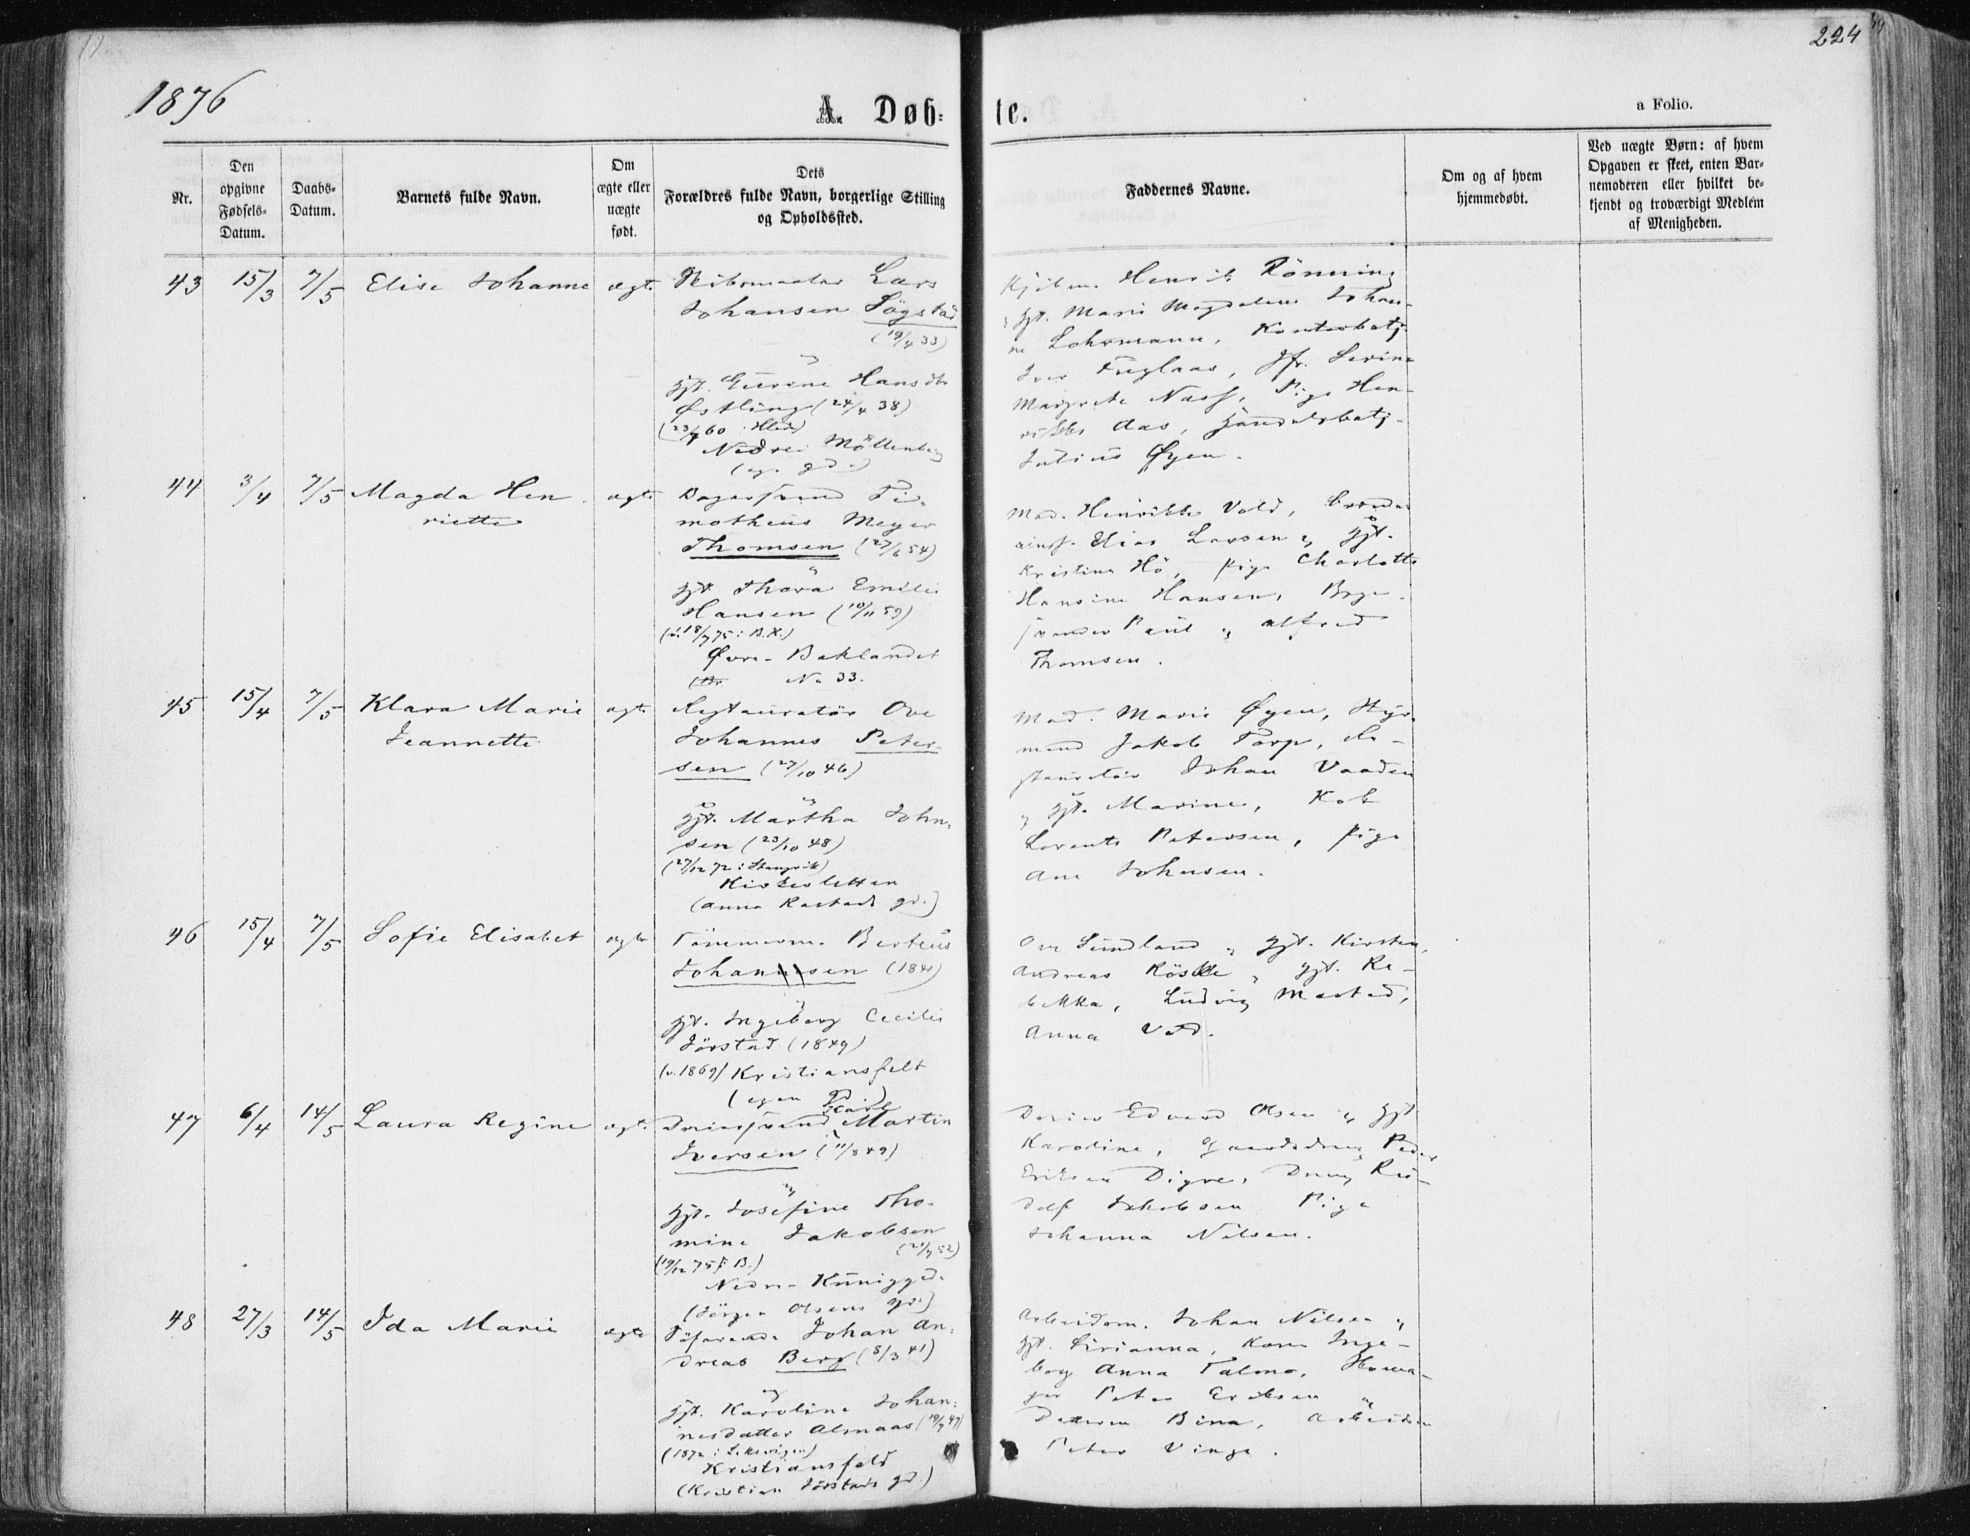 1876
224
A. Døb-
te.
a Folio.
Nr.
Den
opgivne
Fødsels-
Datum.
Daabs-
Datum.
Barnets fulde Navn.
Om
ægte eller
uægte
født.
Dets
Forældres fulde Navn, borgerlige Stilling
og Opholdssted.
Faddernes Navne.
Om og af hvem
hjemmedøbt.
Ved uægte Børn: af hvem
Opgaven er skeet, enten Bar-
nemoderen eller hvilket be-
kjendt og troværdigt Medlem
af Menigheden.
43 15/3 7/5 Elise Johanne ægt.
Lars
Johansen Søgstad
(19/4 33)
Hansdtr
Østling (24/4 38)
Nedre Möllenberg
Henrik Rönning
Marie Magdalene Johan-
ne Lohrmann,
Iver Fuglaas, Jfr. Serine
Margrete Nass, Pige Hen-
rikke Aas, Handelsbetj.
Julius Øyen.
44 3/4 7/5 Magda Hen-
riette
ægte
Bagersvend Ti-
motheus Meyer
Thomsen (27/6 54)
hjt. Thora Emilie
Hansen (10/11 59)
(v. 18/7 75 i B.K.)
Øvre-Baklandet
No 33.
Mad. Henrikke Vold,
Elias Larsen og hjt.
Kristine Hö, pige Charlotte
Hansine Hansen,
Paul og Alfred
Thomsen.
45 15/4 7/5 Klara Marie
Jeannette
ægte
Restauratör Ove
Johannes Peter-
sen (27/10 46)
og
hjt. Martha John-
sen (23/10 48)
(27/12 72 i Stangvik)
Kirkesletten
(Anna Rastads gd.)
Mad. Marie Øyen, Styr-
mand Jakob Torp, Re-
stauratör Johan Vaaden
og hjt. Marine, Kok
Lorents Petersen, pige
Ane Johnsen.
46 15/4 7/5 Sofie Elisabet ægte
Tömmerm. Berteus
Johannsen (1841)
og
hjt. Ingeborg Cecilie
Jörstad (1849)
(v. 1869) Kristiansfelt
(egen gd)
Ove Sundland og hjt. Kirsten,
Andreas Röskle og hjt. Re-
bekka, Ludvig Mostad,
Anna Vod.
47 6/4 14/5 Laura Regine ægt.
Carl
Martin
Iversen (11/8 49)
og
hjt. Josefine Tho-
mine Jakobsen
(21/7 52)
(19/12 75 i B.)
(Jörgen Olsens gd.)
Edvard Olsen og hjt
Karoline, Gaardsdreng Peder
Eriksen Digre, Dreng Ru-
dolf Jakobsen Pige
Johanna Nilsen.
48 27/3 14/5 Ida Marie ægte
Johan An-
dreas Berg (5/3 41)
og
hjt. Karoline Johan-
nesdatter Almaas (19/7 47)
(1872 i Leksvigen)
Kristiansfeld
(Kristian Jörstads gd.)
Arbeidsm. Johan Nilsen og
hjt. Sirianna, Kone Inge-
borg Anna Talmo,
Peter Eriksen og
Datteren Bina,
Peter Vinge.